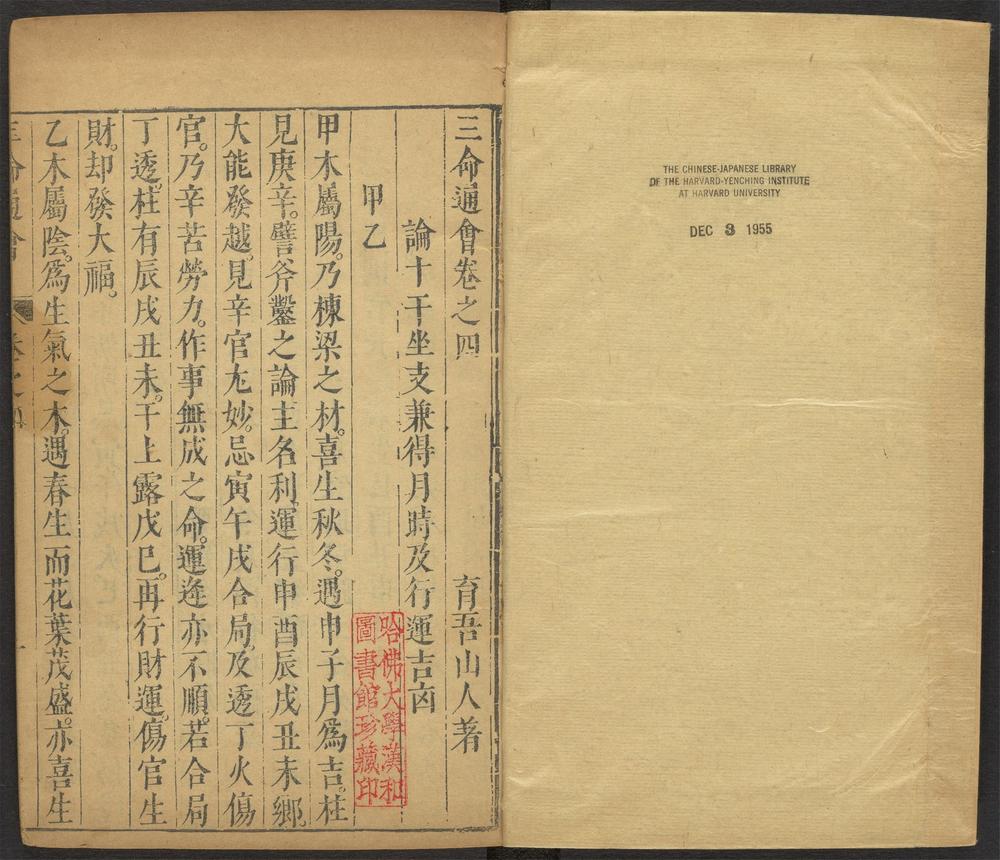 THE CHINESE-JAPANESE LIBRARY
OF THE HARVARD-YENCHING INSTITUTE
AT HARVARD UNIVERSITY
DEC 3 1955
三命通會卷之四
育吾山人著
論十干坐支兼得月時及行運吉凶
甲乙
哈佛大學漢和
圖書館珍藏印
甲木屬陽。乃棟梁之材。喜生秋冬。遇申子月爲吉。柱
見庚辛。譬斧鑿之論主名利。運行申酉辰戌丑未鄉。
大能發越。見辛官尤妙。忌寅午戌合局。及透丁火傷
官。乃辛苦勞力。作事無成之命。運逢亦不順。若合局
丁透。柱有辰戌丑未。干上露戊巳。再行財運。傷官生
財。却發大福。
乙木屬陰。爲生氣之木。遇春生而花葉茂盛。亦喜生
三命通會
卷之四